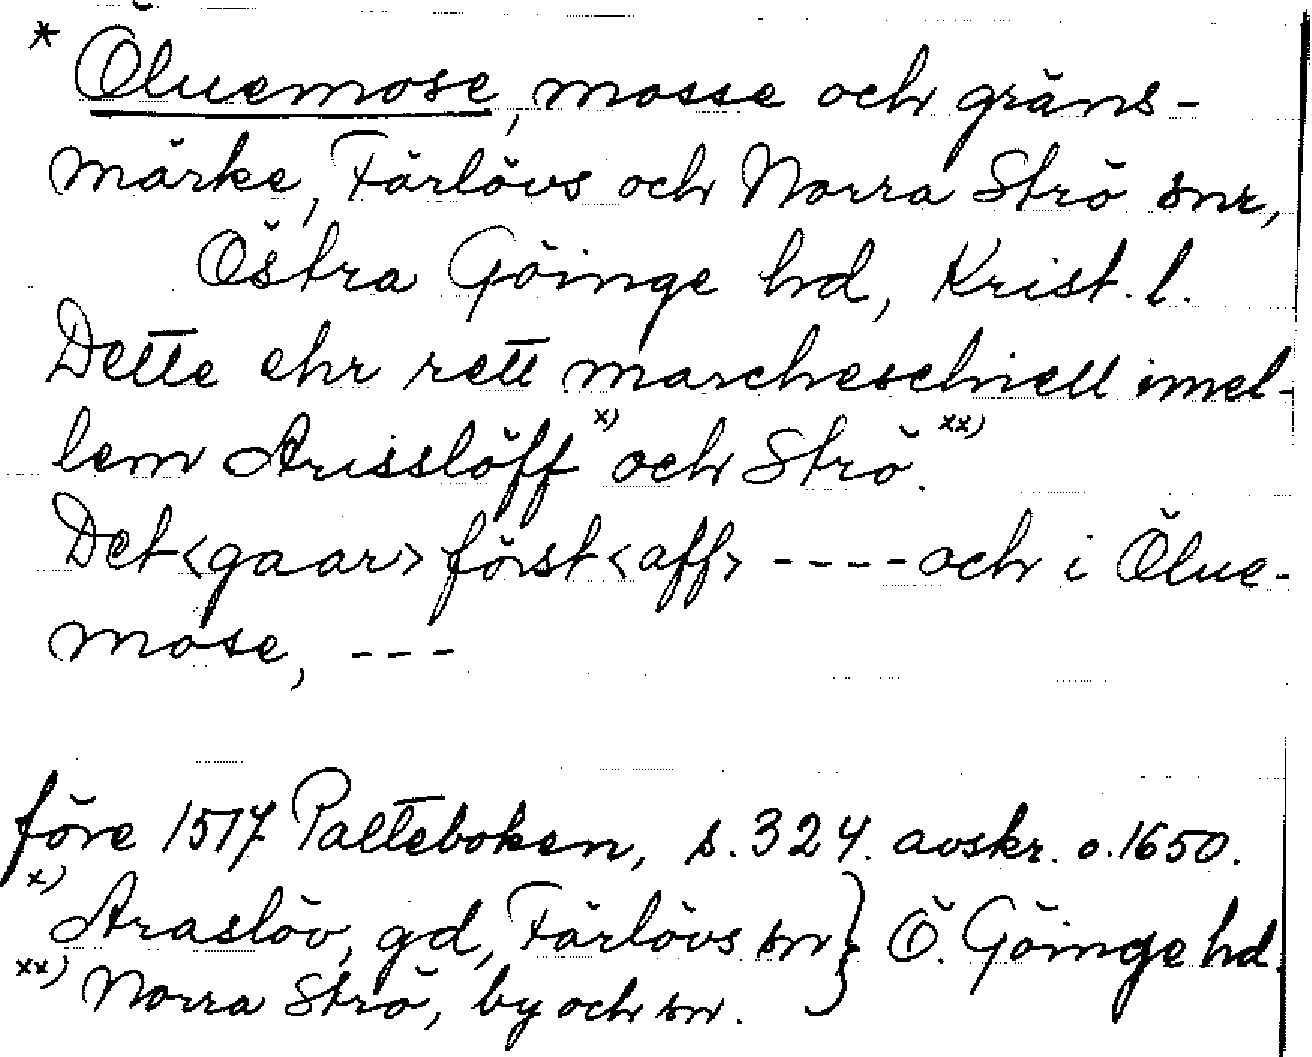 * Öluemose, mosse och gräns-
märke, Färlövs och Norra Strö snr,
Östra Göinge hd, Krist. l.
Dette ehr rett marcheschiell imel-
lem Arisslöff x) och Strö. xx)
Det <gaar> först <aff> ---- och i Ölue-
mose, ---
före 1517 Palteboken, s. 324. avskr. o. 1650.
x) Araslöv, gd, Färlövs sn } Ö. Göinge hd.
xx) Norra Strö, by och sn.